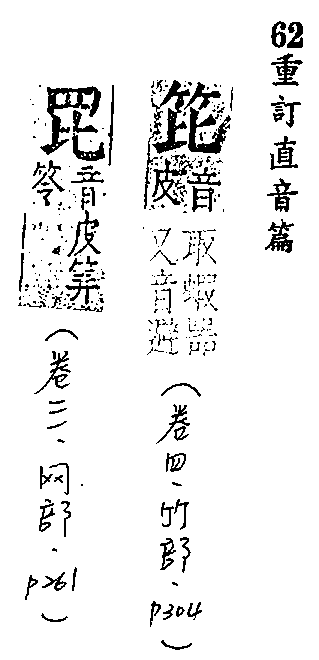 62重訂直音篇
笓
音
皮
取蝦器
又音避
（卷四、竹部、p304）
音皮
笭
（卷三、网部、p261）